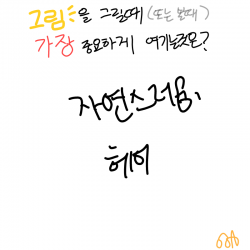 그림을 그릴때 (또는 볼때)
가장 중요하게 여기는것은?
자연스러움,
헤어